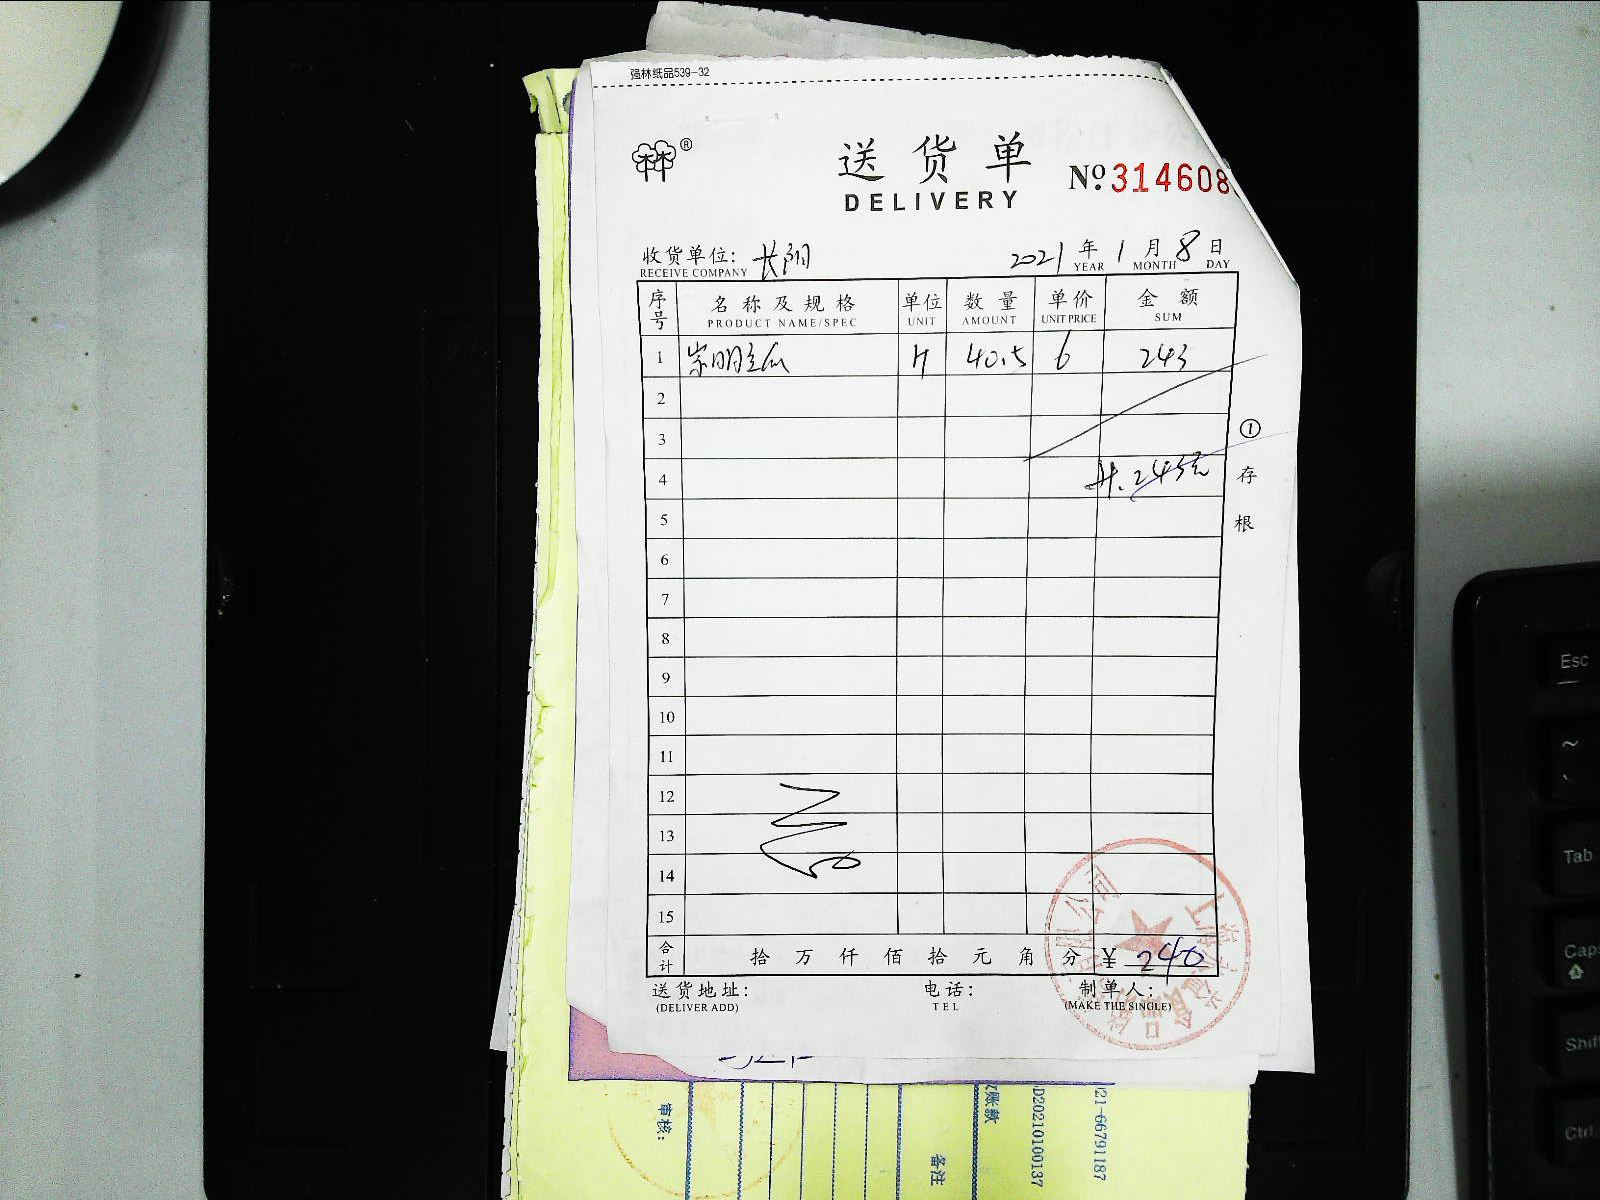 强林纸品539-32
®
送货单
DELIVERY
№314608
收货单位：
RECEIVE COMPANY
2021 年 1 月 8 日
YEAR MONTH DAY
序号 名称及规格 单位 数量 单价 金额
PRODUCT NAME/SPEC UNIT AMOUNT UNIT PRICE SUM
1 崇明 40.5 6 243
2
3
4 共.243元
5
6
7
8
9
10
11
12
13
14
15
合计 拾 万 仟 佰 拾 元 角 分 ¥ 240
① 存根
送货地址： 电话： 制单人：
(DELIVER ADD) TEL (MAKE THE SINGLE)
上海 食品 有限公司
审核：
备注
账款
D20210100137
021-66791187
Esc
~
Tab
Caps
Shift
Ctrl